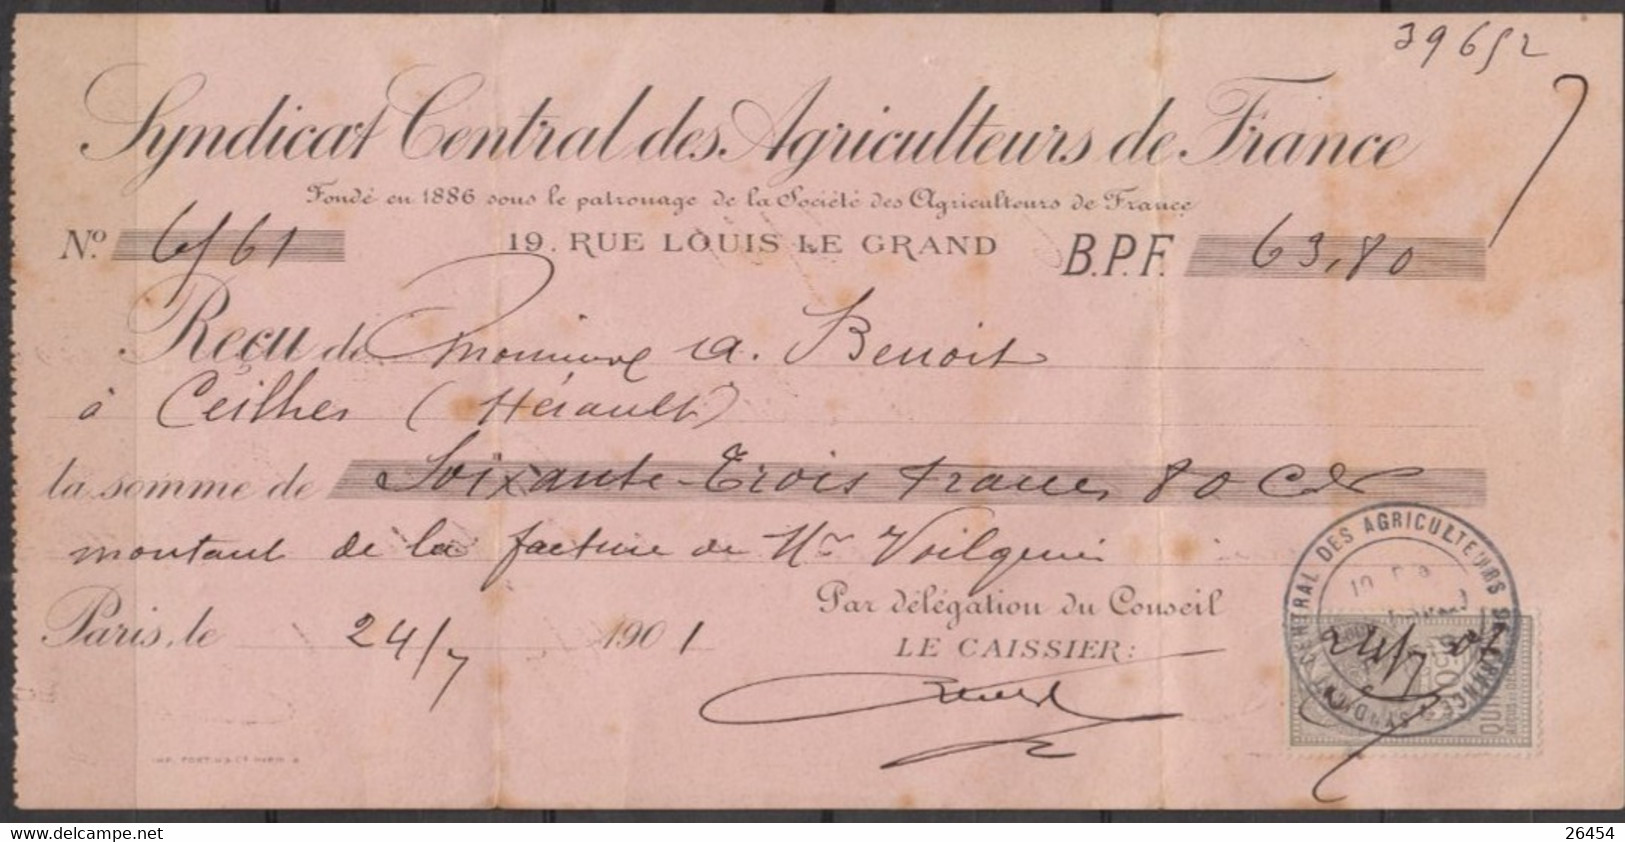 39652
Syndicat Central des Agriculteurs de France
Fondé en 1886 sous le patronage de la Société des Agriculteurs de France
N.° 6/61 19. RUE LOUIS LE GRAND B.P.F. 63,80
Reçu de Monsieur A. Benoit
à Ceilhes (Hérault)
la somme de Soixante-trois francs 80 Ces
montant de la facture de Mr
Par délégation du Conseil
Paris, le 24/7 1901
LE CAISSIER:
SYNDICAT CENTRAL DES AGRICULTEURS DE FRANCE
24/7 01
www.delcampe.net
26454